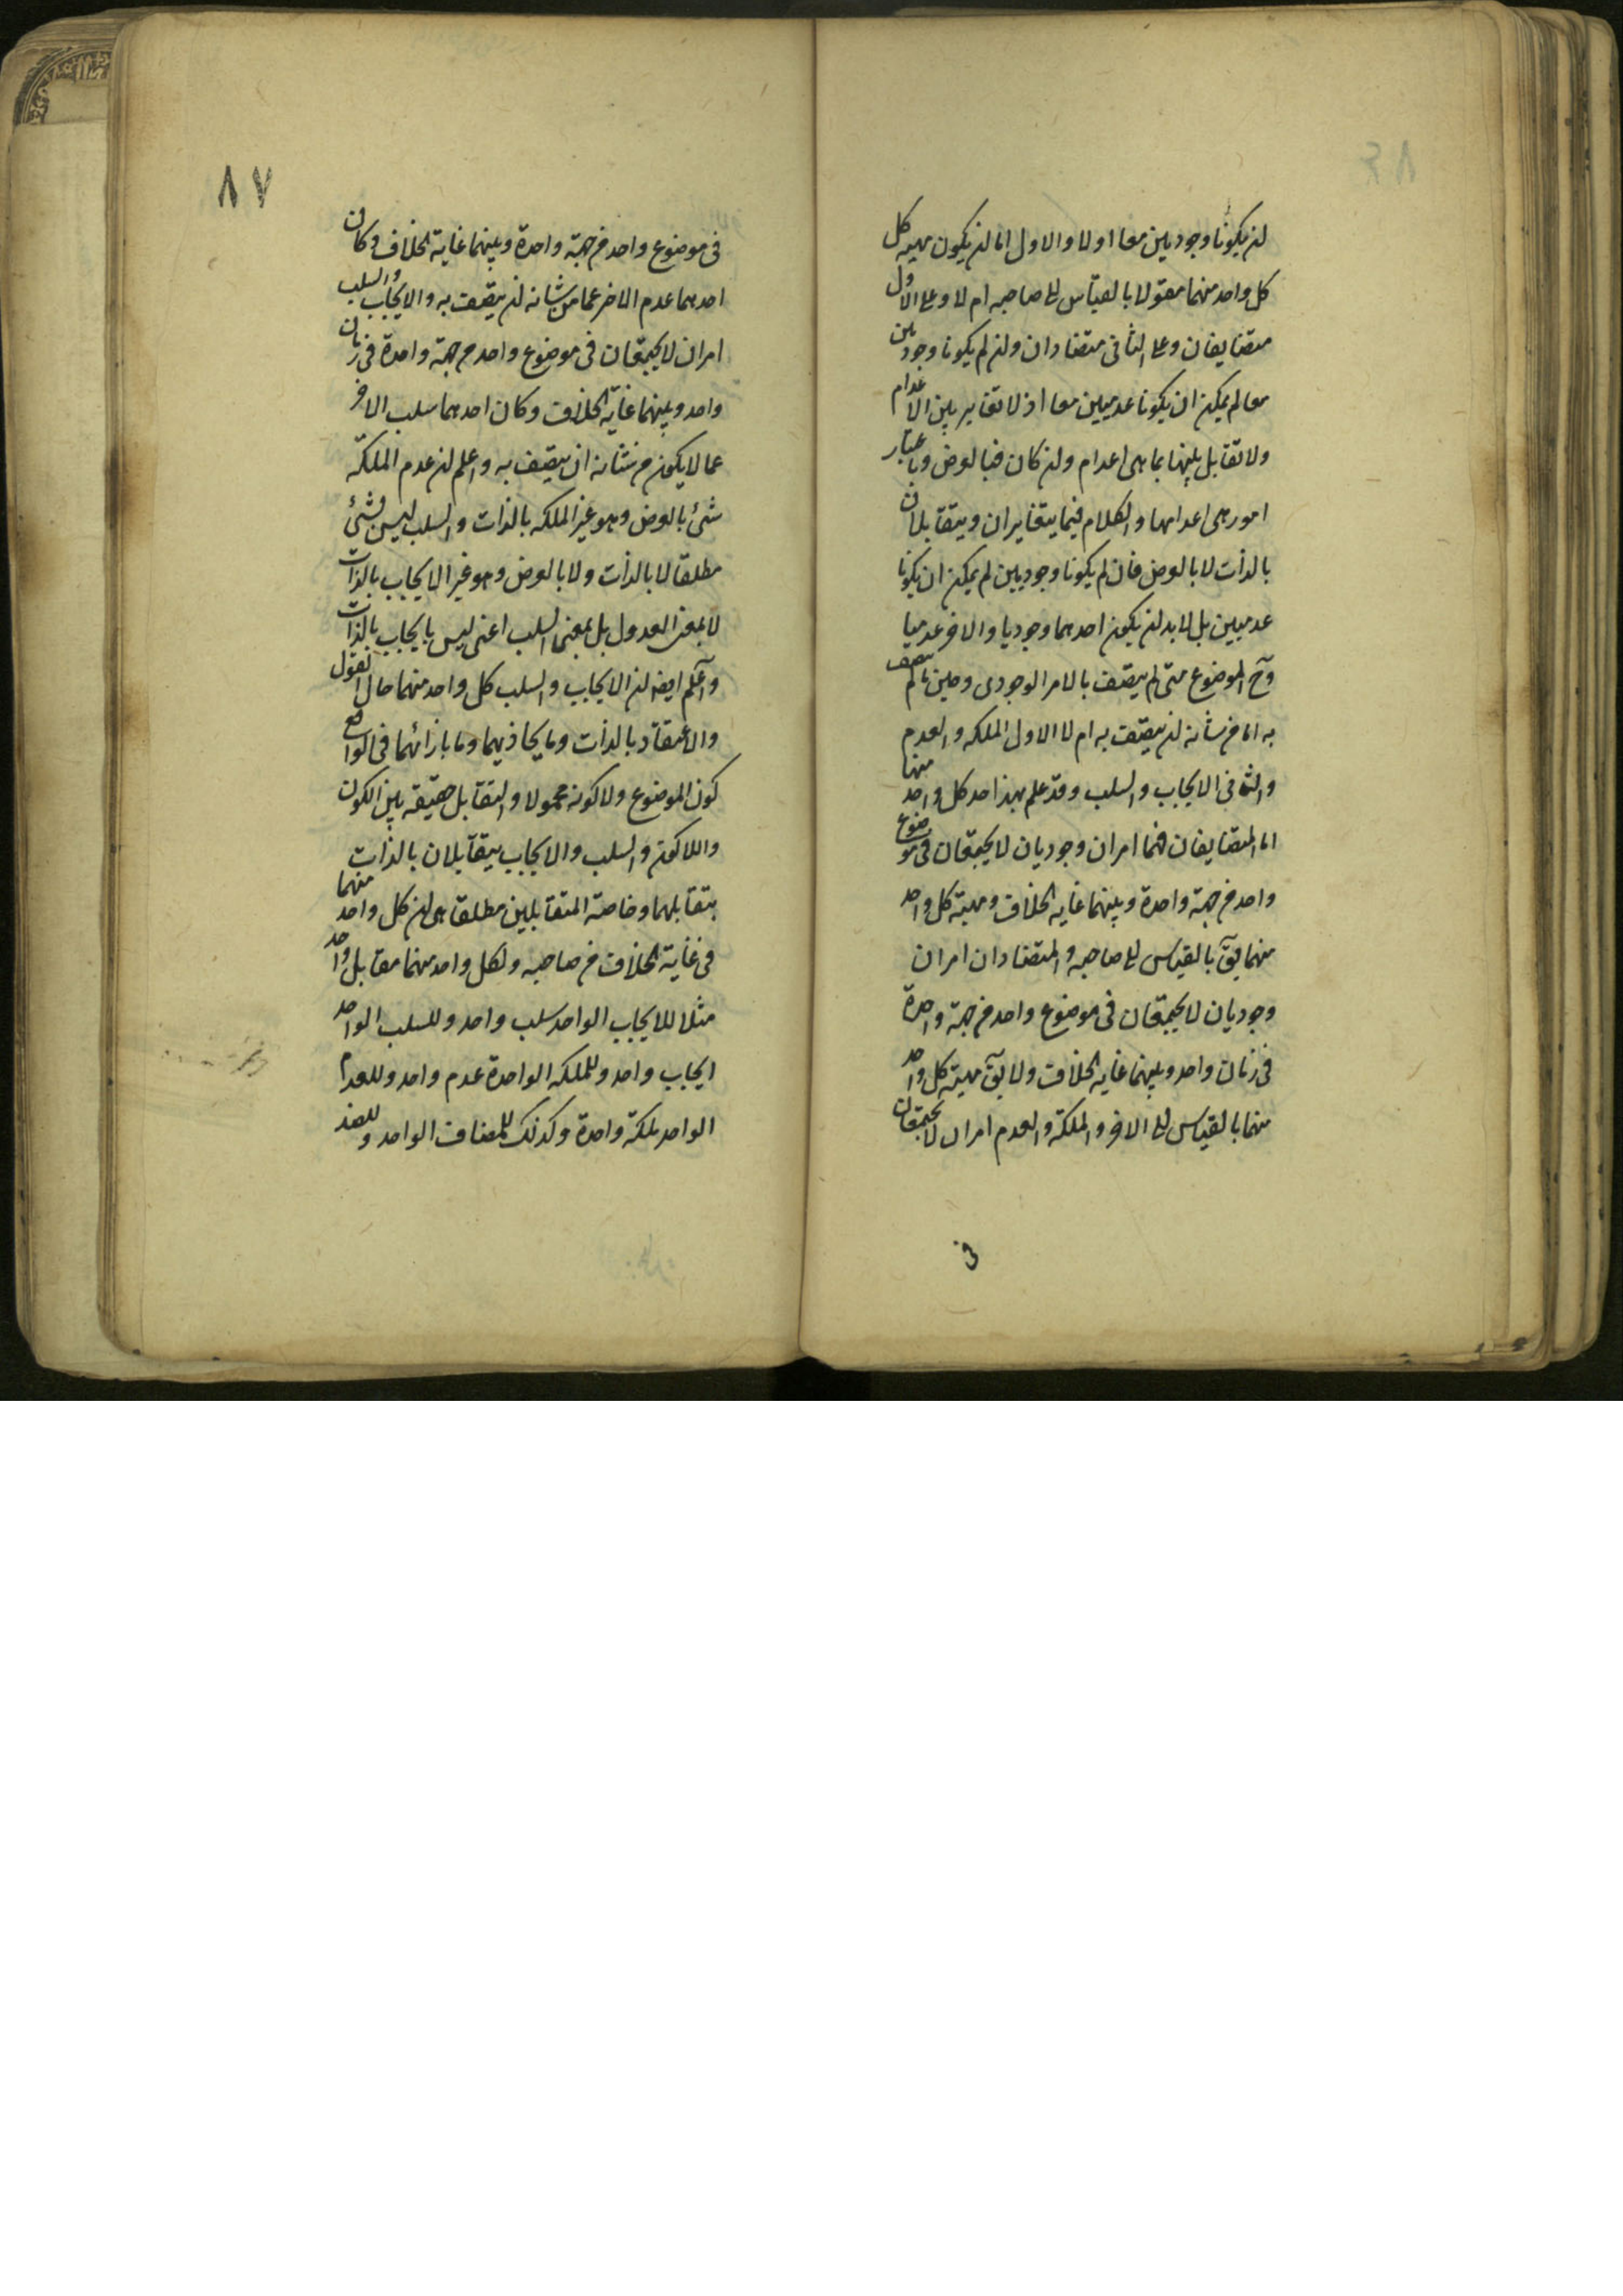 ان يكونا وجوديين معا او لا والاول اما ان يكون مهية كل
كل واحد منهما مقولا بالقياس الى صاحبه ام لا وعلى الاول
متضايفان وعلى الثانى متضادان وان لم يكونا وجوديين
معا لم يمكن ان يكونا عدميين معا اذ لا تغاير بين الاعدام
ولا تقابل بينها بما هى اعدام وان كان فبالعرض وباعتبار
امور هى اعدامها والكلام فيما يتغايران ويتقابلان
بالذات لا بالعرض فان لم يكونا وجوديين لم يمكن ان يكونا
عدميين بل لابد ان يكون احدهما وجوديا والاخر عدميا
وح الموضوع متى لم يتصف بالامر الوجودى وحين ما لم يتصف
به اما من شانه ان يتصف به ام لا الاول الملكه والعدم
والثانى الايجاب والسلب وقد علم بهذا حد كل واحد منها
اما المتضايفان فهما امران وجوديان لا يجتمعان فى موضوع
واحد من جهة واحدة وبينهما غايه الخلاف ومهية كل واحد
منهما يق بالقياس الى صاحبه والمتضادان امران
وجوديان لا يجتمعان فى موضوع واحد من جهة واحدة
فى زمان واحد وبينهما غايه الخلاف ولا يق مهية كل واحد
منهما بالقياس الى الاخر والملكة والعدم امران لا يجتمعان
٨٧
فى موضوع واحد من جهة واحدة وبينهما غاية الخلاف وكان
احدهما عدم الاخر عما من شانه ان يتصف به والايجاب والسلب
امران لا يجتمعان فى موضوع واحد من جهة واحدة فى زمان
واحد وبينهما غايه الخلاف وكان احدهما سلب الاخر
عما لا يكون من شانه ان يتصف به واعلم ان عدم الملكة
شئ بالعرض وهو غير الملكه بالذات والسلب ليس بشئ
مطلقا لا بالذات ولا بالعرض وهو غير الايجاب بالذات
لا بمعنى العدول بل بمعنى السلب اعنى ليس بايجاب بالذات
واعلم ايضا ان الايجاب والسلب كل واحد منهما حال القول
والاعتقاد بالذات وما يحاذيهما وما بازائهما فى الواقع
كون الموضوع ولا كونه محمولا والتقابل حقيقه بين الكون
واللاكون والسلب والايجاب يتقابلان بالذات
بتقابلهما وخاصة المتقابلين مطلقا هى ان كل واحد منهما
فى غاية الخلاف من صاحبه ولكل واحد منهما مقابل واحد
مثلا للايجاب الواحد سلب واحد وللسلب الواحد
ايجاب واحد وللملكه الواحدة عدم واحد وللعدم
الواحد ملكة واحدة وكذلك للمضاف الواحد وللضد